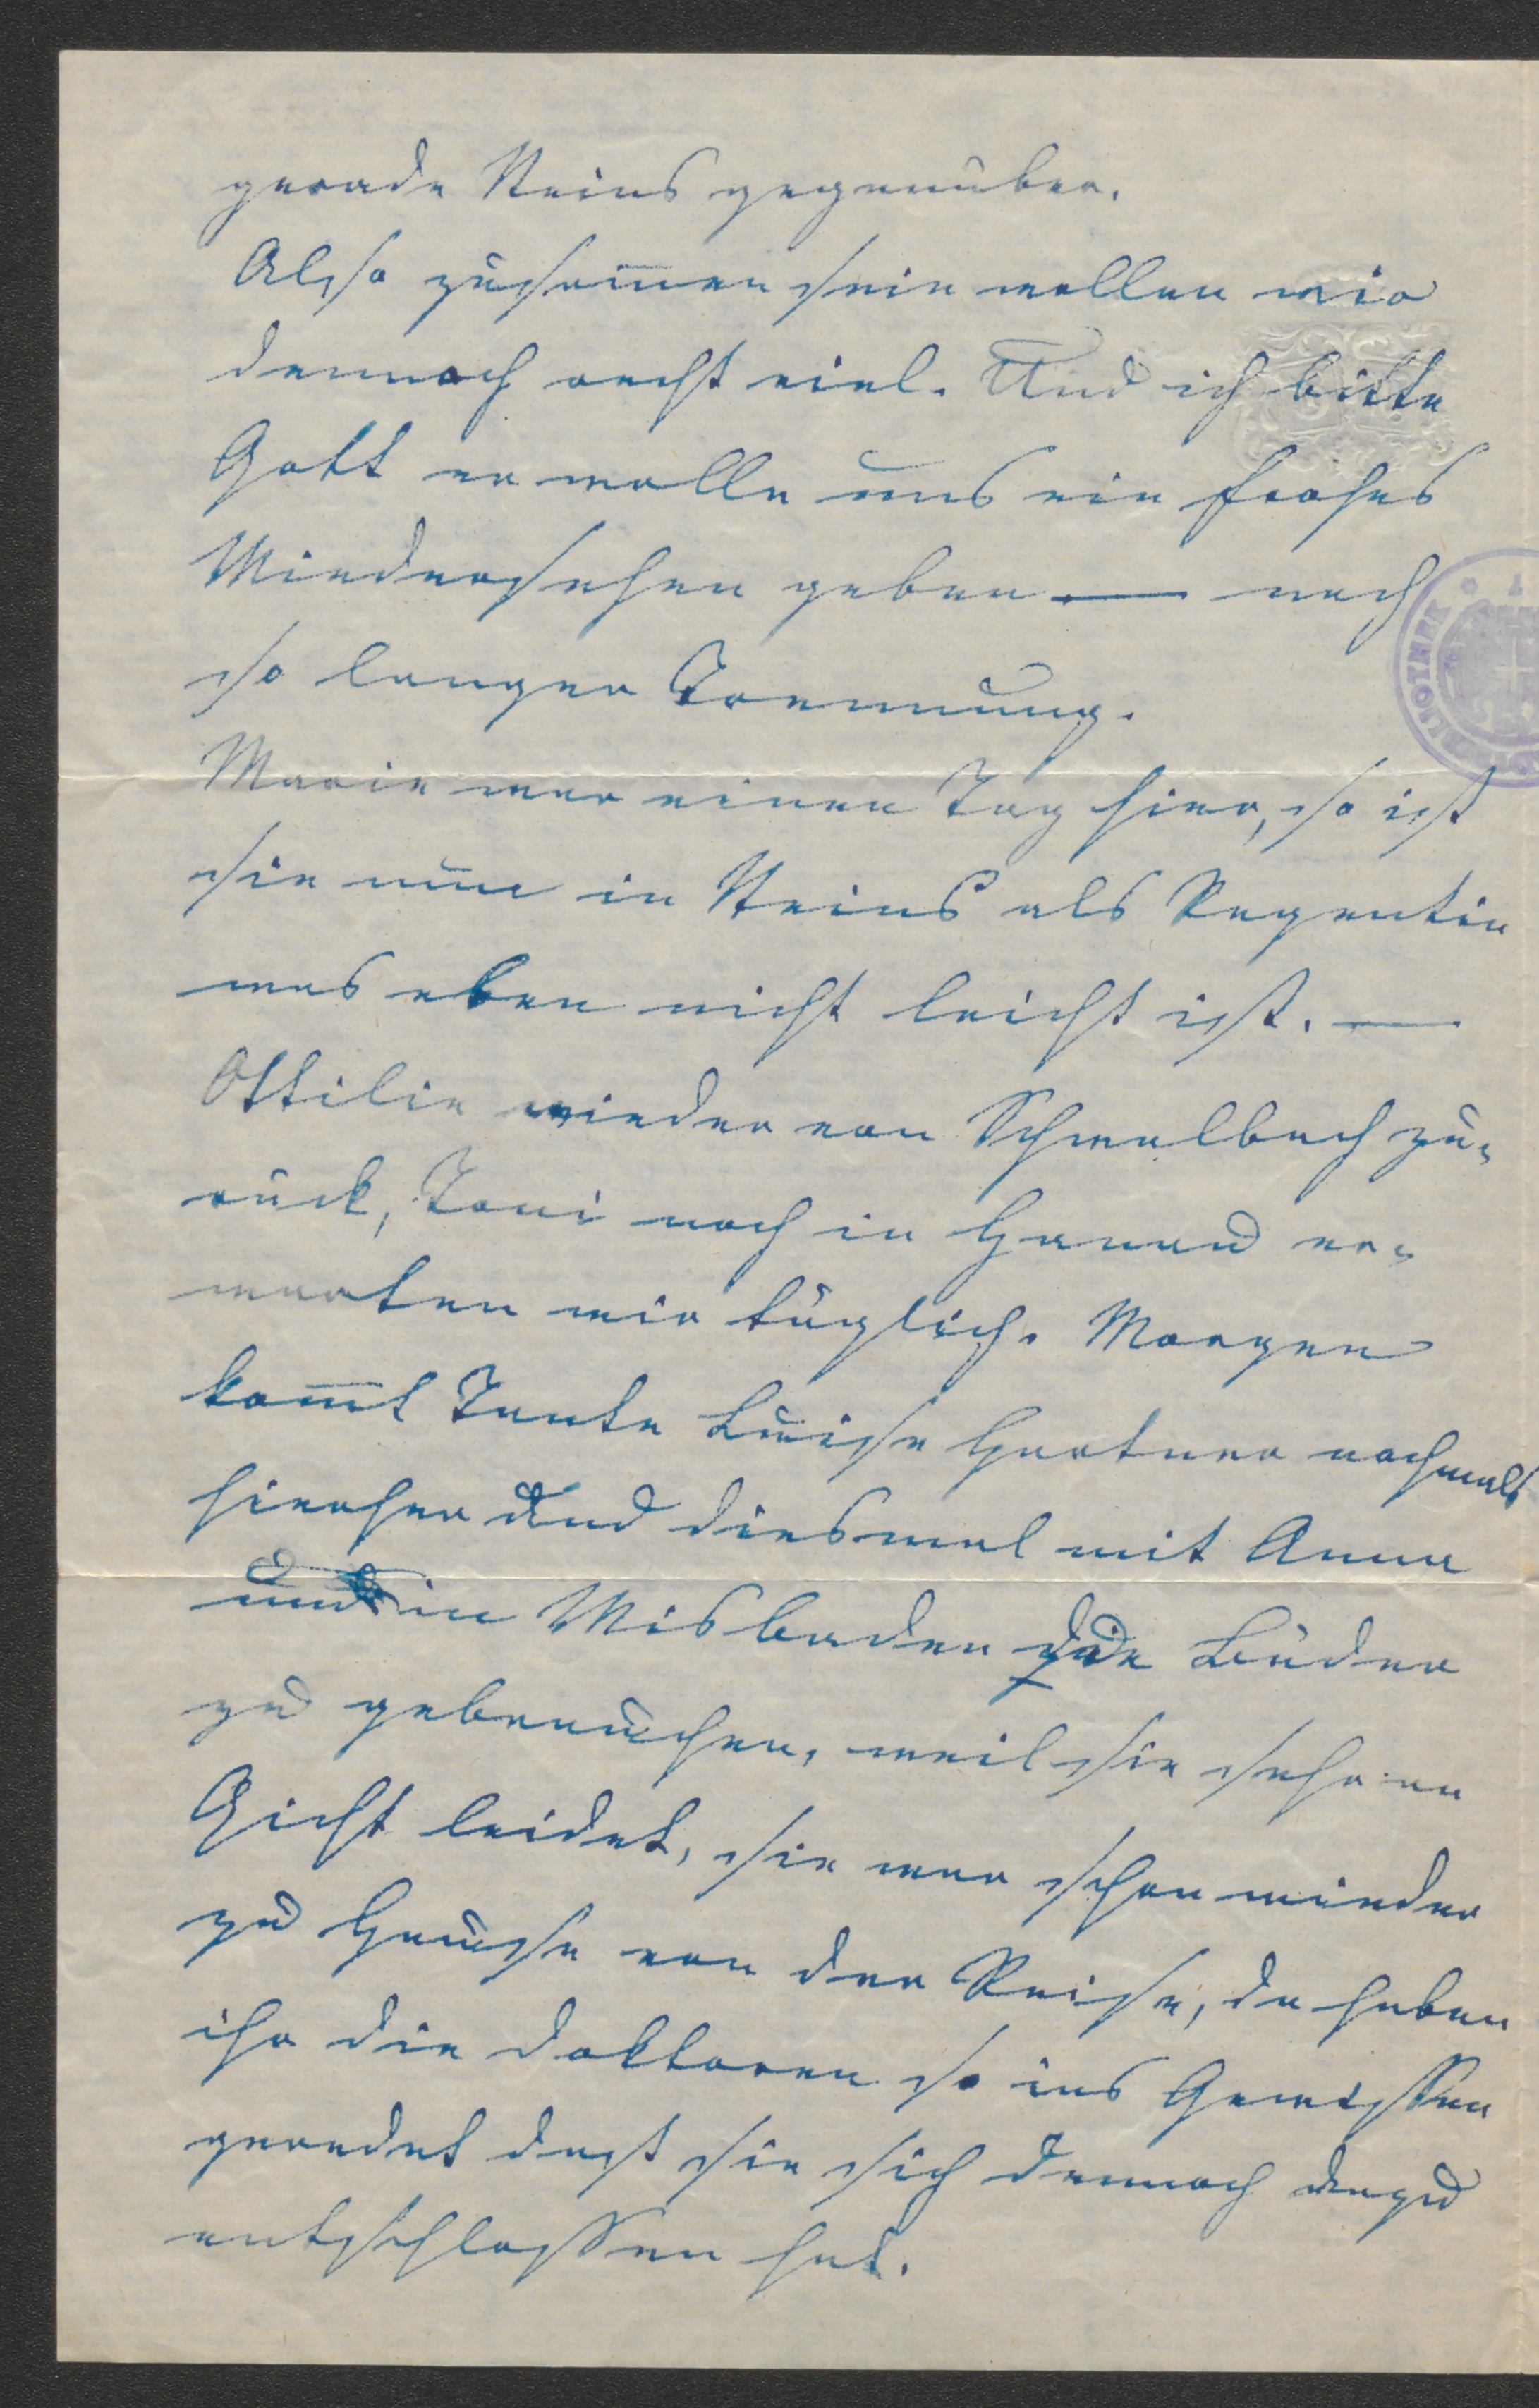 gerade Steins gegenüber.
Also zusam̅en sein wollen wir
dennoch recht viel. Und ich bitte
Gott er wolle uns ein frohes
Wiedersehen geben — nach
so langer Trennung.
Marie war einen Tag hier, so ist
sie nun in Steins als Regentin
was eben nicht leicht ist. —
Ottilie wieder von Schwalbach zu-
rück, Toni noch in Hanau er-
warten wir täglich. Morgen
kom̅t Tante Luise Hartner nochmals
hierher und diesmal mit Anna
in Wisbaden die Bäder
zu gebrauchen, weil sie sehr an
Gicht leidet, sie war schon wieder
zu Hause von der Reise, da haben
ihr die Doktoren so ins Gewissen
geredet dass sie sich dennoch dazu
entschlossen hat.